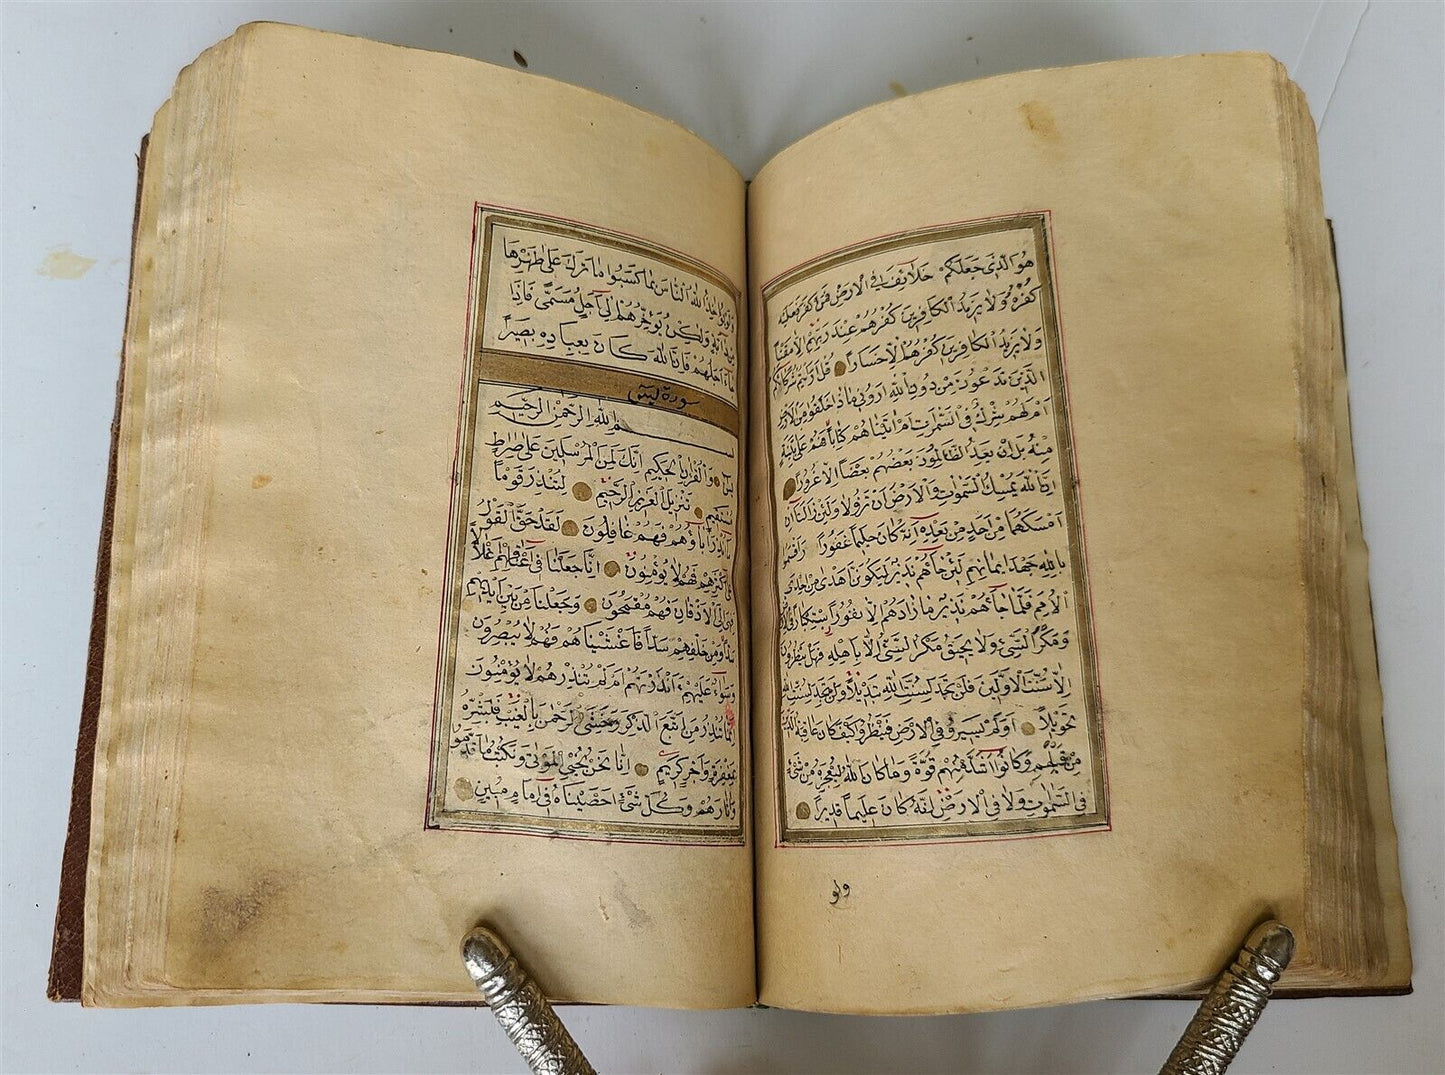 هُوَ الَّذِي جَعَلَكُمْ خَلَائِفَ فِي الْاَرْضِ فَمَنْ كَفَرَ فَعَلَيْهِ
كُفْرُهُ وَلَا يَزِيدُ الْكَافِرِينَ كُفْرُهُمْ عِنْدَ رَبِّهِمْ اِلَّا مَقْتًا
وَلَا يَزِيدُ الْكَافِرِينَ كُفْرُهُمْ اِلَّا خَسَارًا قُلْ اَرَاَيْتُمْ شُرَكَاءَكُمُ
الَّذِينَ تَدْعُونَ مِنْ دُونِ اللهِ اَرُونِي مَاذَا خَلَقُوا مِنَ الْاَرْضِ
اَمْ لَهُمْ شِرْكٌ فِي السَّمٰوَاتِ اَمْ اٰتَيْنَاهُمْ كِتَابًا فَهُمْ عَلٰى بَيِّنَةٍ
مِنْهُ بَلْ اِنْ يَعِدُ الظَّالِمُونَ بَعْضُهُمْ بَعْضًا اِلَّا غُرُورًا
اِنَّ اللهَ يُمْسِكُ السَّمٰوَاتِ وَالْاَرْضَ اَنْ تَزُولَا وَلَئِنْ زَالَتَا اِنْ
اَمْسَكَهُمَا مِنْ اَحَدٍ مِنْ بَعْدِهِ اِنَّهُ كَانَ حَلِيمًا غَفُورًا وَاَقْسَمُوا
بِاللهِ جَهْدَ اَيْمَانِهِمْ لَئِنْ جَاءَهُمْ نَذِيرٌ لَيَكُونَنَّ اَهْدٰى مِنْ اِحْدَى
الْاُمَمِ فَلَمَّا جَاءَهُمْ نَذِيرٌ مَا زَادَهُمْ اِلَّا نُفُورًا اسْتِكْبَارًا فِي الْاَرْضِ
وَمَكْرَ السَّيِّئِ وَلَا يَحِيقُ الْمَكْرُ السَّيِّئُ اِلَّا بِاَهْلِهِ فَهَلْ يَنْظُرُونَ
اِلَّا سُنَّتَ الْاَوَّلِينَ فَلَنْ تَجِدَ لِسُنَّتِ اللهِ تَبْدِيلًا وَلَنْ تَجِدَ لِسُنَّتِ اللهِ
تَحْوِيلًا اَوَلَمْ يَسِيرُوا فِي الْاَرْضِ فَيَنْظُرُوا كَيْفَ كَانَ عَاقِبَةُ الَّذِينَ
مِنْ قَبْلِهِمْ وَكَانُوا اَشَدَّ مِنْهُمْ قُوَّةً وَمَا كَانَ اللهُ لِيُعْجِزَهُ مِنْ شَيْءٍ
فِي السَّمٰوَاتِ وَلَا فِي الْاَرْضِ اِنَّهُ كَانَ عَلِيمًا قَدِيرًا
ولو
وَلَوْ يُؤَاخِذُ اللهُ النَّاسَ بِمَا كَسَبُوا مَا تَرَكَ عَلٰى ظَهْرِهَا
مِنْ دَابَّةٍ وَلٰكِنْ يُؤَخِّرُهُمْ اِلٰى اَجَلٍ مُسَمًّى فَاِذَا
جَاءَ اَجَلُهُمْ فَاِنَّ اللهَ كَانَ بِعِبَادِهِ بَصِيرًا
سورة يس
بسم اللهِ الرَّحْمٰنِ الرَّحِيمِ
يس وَالْقُرْاٰنِ الْحَكِيمِ اِنَّكَ لَمِنَ الْمُرْسَلِينَ عَلٰى صِرَاطٍ
مُسْتَقِيمٍ تَنْزِيلَ الْعَزِيزِ الرَّحِيمِ لِتُنْذِرَ قَوْمًا
مَا اُنْذِرَ اٰبَاؤُهُمْ فَهُمْ غَافِلُونَ لَقَدْ حَقَّ الْقَوْلُ
عَلٰى اَكْثَرِهِمْ فَهُمْ لَا يُؤْمِنُونَ اِنَّا جَعَلْنَا فِي اَعْنَاقِهِمْ اَغْلَالًا
فَهِيَ اِلَى الْاَذْقَانِ فَهُمْ مُقْمَحُونَ وَجَعَلْنَا مِنْ بَيْنِ اَيْدِيهِمْ
سَدًّا وَمِنْ خَلْفِهِمْ سَدًّا فَاَغْشَيْنَاهُمْ فَهُمْ لَا يُبْصِرُونَ
وَسَوَاءٌ عَلَيْهِمْ ءَاَنْذَرْتَهُمْ اَمْ لَمْ تُنْذِرْهُمْ لَا يُؤْمِنُونَ
اِنَّمَا تُنْذِرُ مَنِ اتَّبَعَ الذِّكْرَ وَخَشِيَ الرَّحْمٰنَ بِالْغَيْبِ فَبَشِّرْهُ
بِمَغْفِرَةٍ وَاَجْرٍ كَرِيمٍ اِنَّا نَحْنُ نُحْيِي الْمَوْتٰى وَنَكْتُبُ مَا قَدَّمُوا
وَاٰثَارَهُمْ وَكُلَّ شَيْءٍ اَحْصَيْنَاهُ فِي اِمَامٍ مُبِينٍ